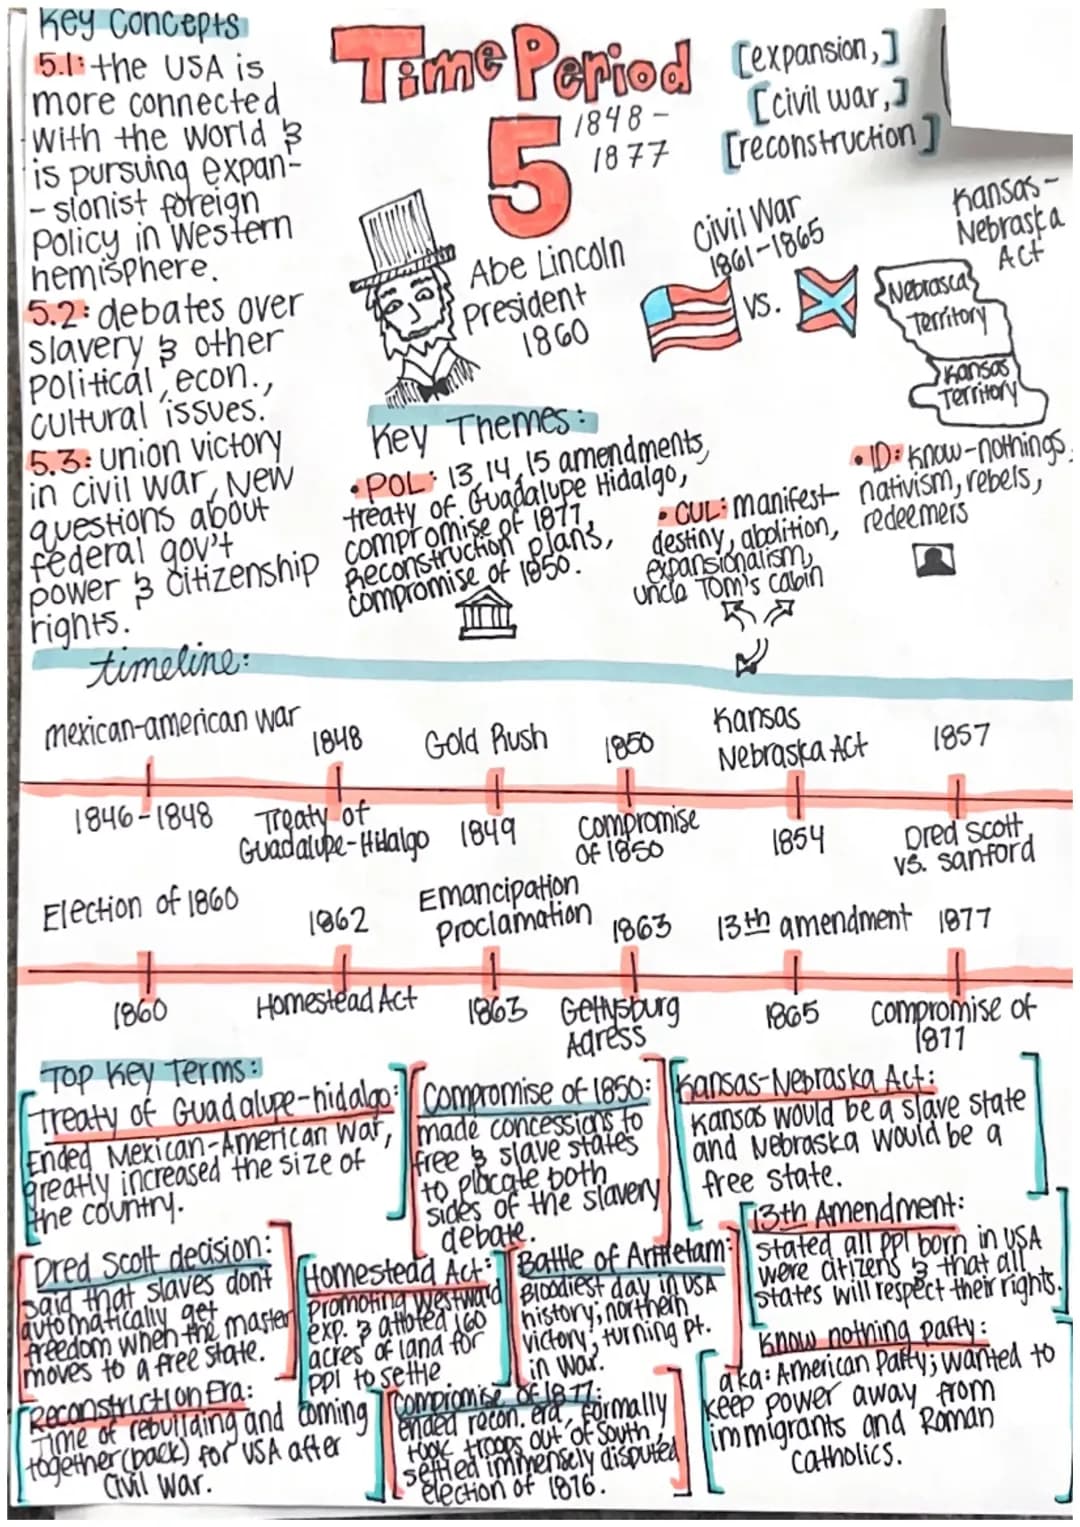 Key Concepts
5.1: the USA is
more connected
with the world &
is pursuing expan-
- sionist foreign
policy in Western
hemisphere.
5.2: debates over
slavery & other
political, econ.,
cultural issues.
5.3: union victory
in civil war, New
questions about
federal gov't
power & citizenship
rights.
Time Period
5
1848 -
1877
[expansion,]
[civil war,]
[reconstruction]
Abe Lincoln
President
1860
Civil War
1861-1865
vs.
Kansas -
Nebraska
Act
Nebrasca
Territory
Kansas
Territory
Key Themes:
• POL: 13, 14, 15 amendments,
treaty of Guadalupe Hidalgo,
compromise of 1877,
Reconstruction plans,
compromise of 1850.
• CUL: manifest
destiny, abolition,
expansionalism,
uncle Tom's cabin
• ID: know-nothings,
nativism, rebels,
redeemers
timeline:
mexican-american war
1848
Gold Rush
1850
Kansas
Nebraska Act
1857
1846-1848
Treaty of
Guadalupe-Hidalgo
1849
Compromise
of 1850
1854
Dred Scott
vs. sanford
Election of 1860
1862
Emancipation
Proclamation
1863
13th amendment
1877
1860
Homestead Act
1863
Gettysburg
Adress
1865
Compromise of
1877
Top Key Terms:
Treaty of Guadalupe-hidalgo:
Ended Mexican-American War,
greatly increased the size of
the country.
Compromise of 1850:
made concessions to
free & slave states
to placate both
sides of the slavery
debate.
Kansas-Nebraska Act:
Kansas would be a slave state
and Nebraska would be a
free state.
Dred Scott decision:
said that slaves dont
automatically get
freedom when the master
moves to a free state.
Homestead Act:
Promoting westward
exp. & alloted 160
acres of land for
ppl to settle
Battle of Antietam:
Bloodiest day in USA
history; northern
victory; turning pt.
in war.
13th Amendment:
stated all ppl born in USA
were citizens & that all
states will respect their rights.
Reconstruction Era:
Time of rebuilding and coming
together (back) for USA after
Civil War.
Compromise of 1877:
ended recon. era, formally
took troops out of South,
settled immensely disputed
election of 1876.
Know nothing party:
aka: American Party; wanted to
keep power away from
immigrants and Roman
Catholics.